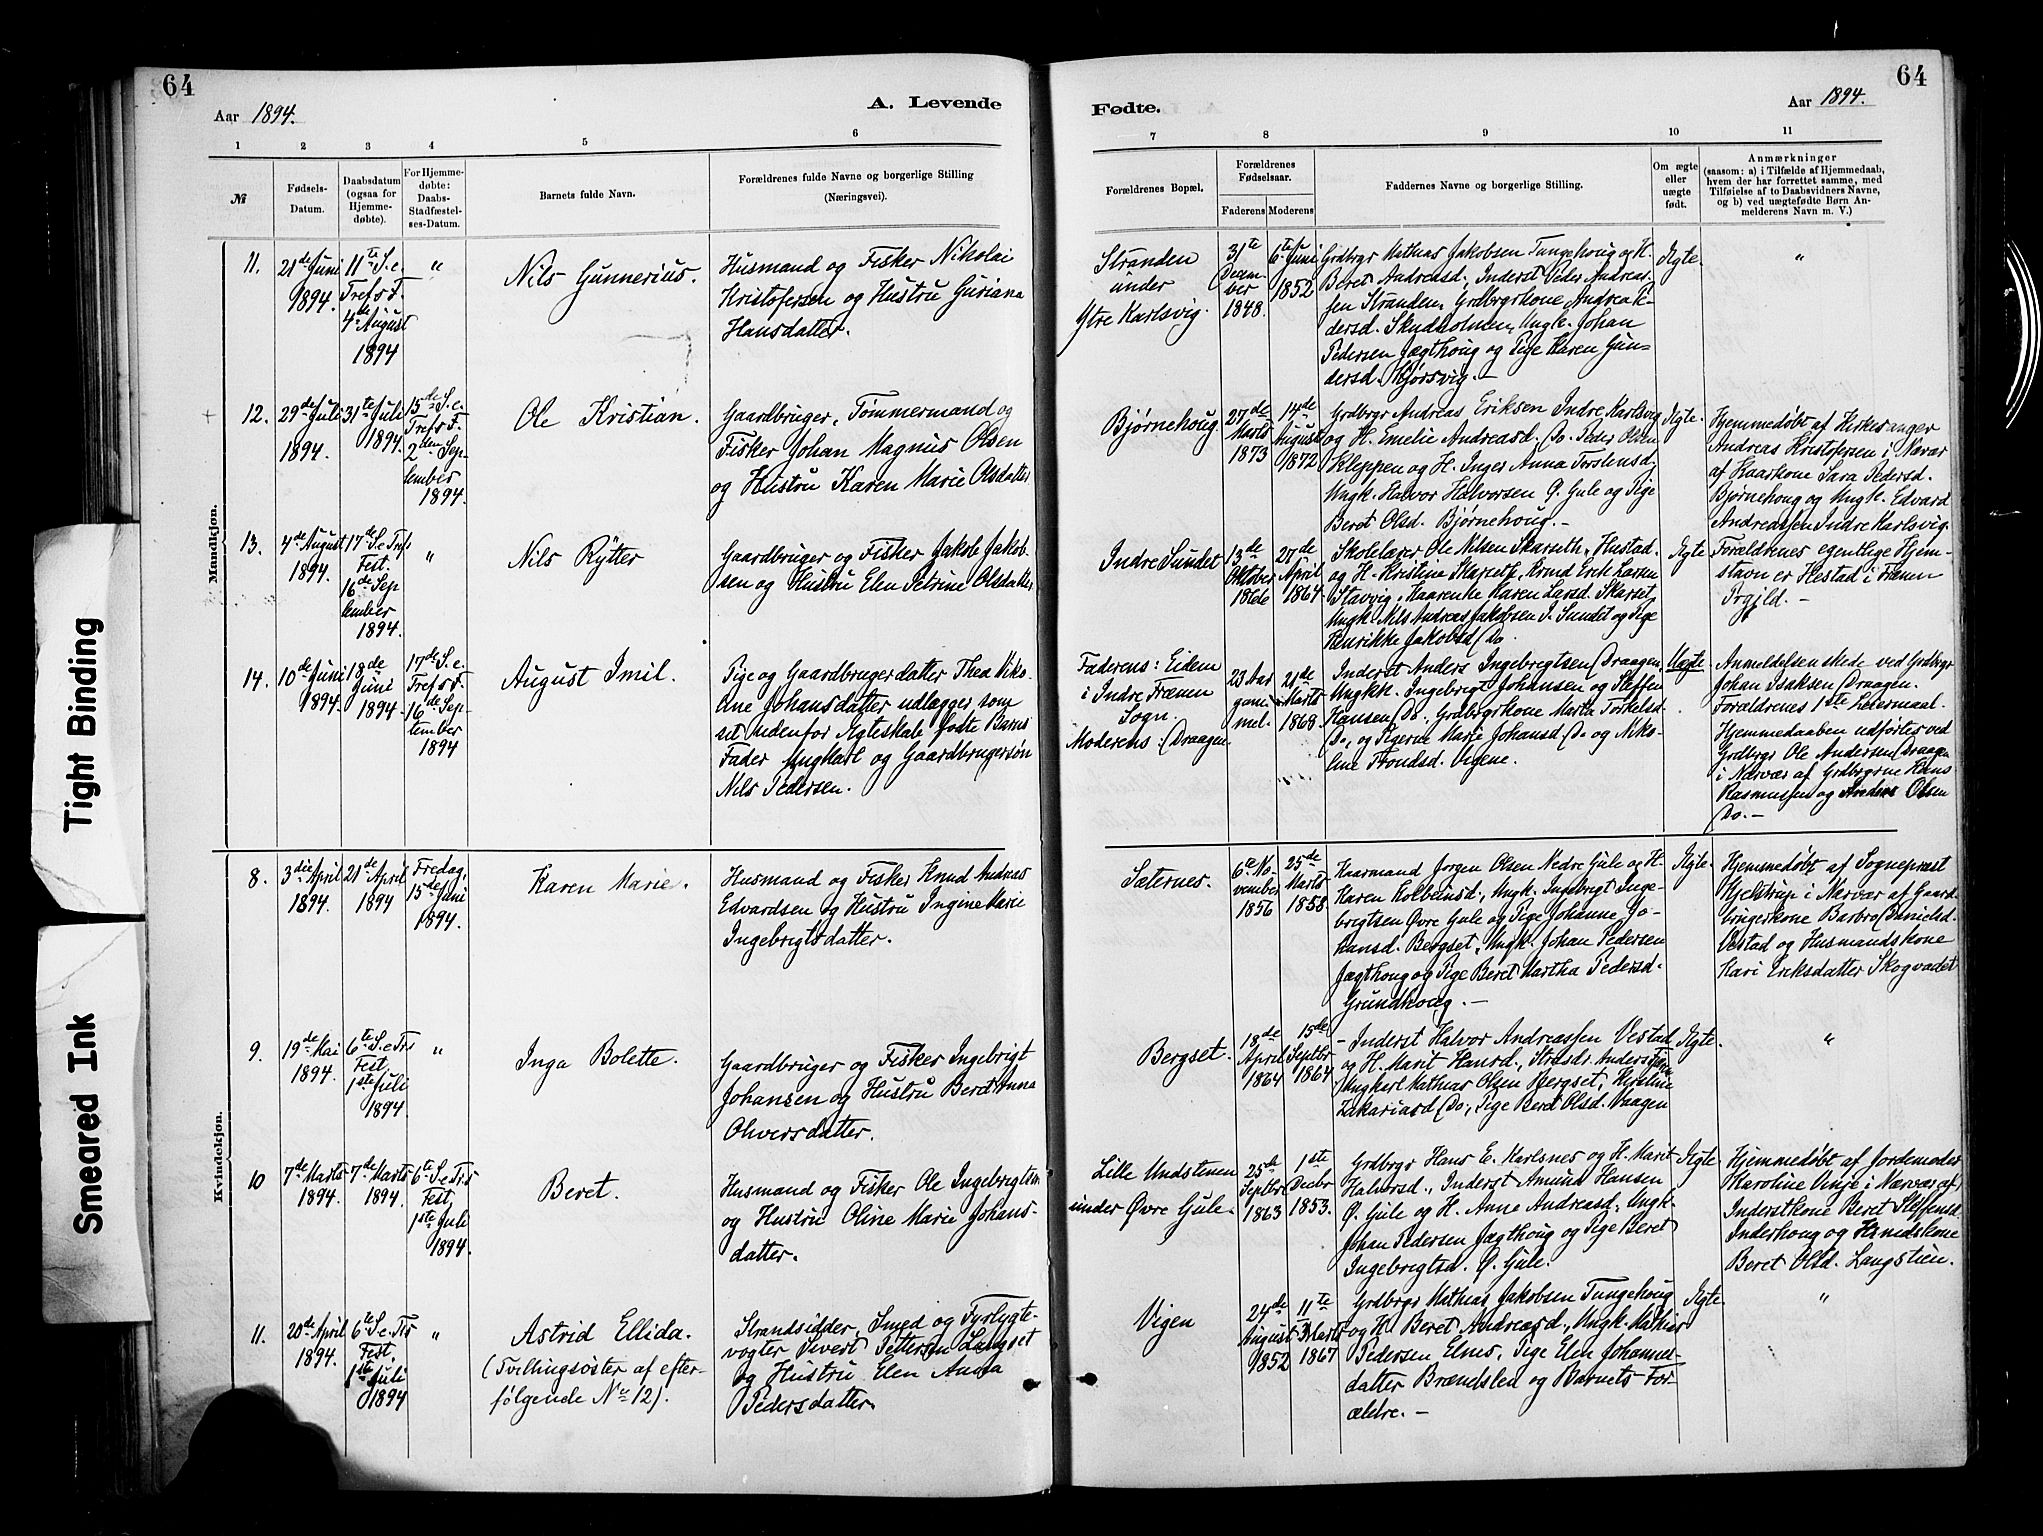 64
64
Aar 1894.
A. Levende
Fødte.
Aar 1894.
1 2 3 4 5 6
7 8 9 10 11
№
Fødsels-
Datum.
Daabsdatum
(ogsaa for
Hjemme-
døbte).
For Hjemme-
døbte:
Daabs-
Stadfæstel-
ses-Datum.
Barnets fulde Navn.
Forældrenes fulde Navne og borgerlige Stilling
(Næringsvei).
Forældrenes Bopæl.
Forældrenes
Fødselsaar.
Faderens Moderens
Faddernes Navne og borgerlige Stilling.
Om ægte
eller
uægte
født.
Anmærkninger
(saasom: a) i Tilfælde af Hjemmedaab,
hvem der har forrettet samme, med
Tilføielse af to Daabsvidners Navne,
og b) ved uægtefødte Børn An-
melderens Navn m. V.)
Mandkjøn.
11.
21de Juni
1894.
11te S. e.
Tref s F.
4de August
1894
"
Nils Gunnerius.
Husmand og Fisker Nikolai
Kristofersen og Hustru Guriana
Hansdatter.
Stranden
under
Ytre Karlsvig.
31te
Decem-
ber
1848.
6te Juni
1852
Grdbrgr Mathias Jakobsen Tungehoug og H.
Beret Andreasd., Inderst Peder Andreas-
sen Stranden, Grdbrgrkone Andrea Pe-
dersd. Skudholmen, Ungk. Johan
Pedersen Jægthoug og Pige Karen Gun-
dersd. Mjørsvig. –
Ægte.
"
12.
29de Juli
1894.
31te Juli
1894.
15de S. e.
Tref s F.
2den Sep-
tember
1894.
Ole Kristian.
Gaardbruger, Tømmermand og
Fisker Johan Magnus Olsen
og Hustru Karen Marie Olsdatter
Bjørnehoug
27de
Marts
1873
14de
August
1872
Grdbrgr Andreas Eriksen Indre Karlsvig
og H. Emelie Andreasd. Do. Peder Olsen
Kleppen og H. Inger Anna Torstensd,
Ungk. Halvor Halvorsen Ø. Gule og Pige
Beret Olsd. Bjørnehoug. –
Ægte.
Hjemmedøbt af Kirkesanger
Andreas Kristofersen i Nævær
af Kaarkone Sara Pedersd.
Bjørnehoug og Ungk. Edvard
Andreassen Indre Karlsvig.
13.
4de August
1894.
17de S. e Tref s
Fest.
16de Sep
tember
1894.
"
Nils Rytter
Gaardbruger og Fisker Jakob Jakob-
sen og Hustru Elen Petrine Olsdatter
Indre Sundet
13de
Oktober
1866
27de
April
1864
Skolelærer Ole Nilsen Skarseth, Hustad.
og H. Kristine Skarseth, Krmd Erik Larsen
Stavvig, Kaarenke Karen Larsd. Skarset,
Ungk. Nils Andreas Jakobsen I. Sundet og Pige
Henrikke Jakobsd Do.
Ægte
Forældrenes egentlige Hjem-
stavn er Hestad i Frænen
Prgjld. –
14.
10de Juni
1894.
18de
Juni
1894.
17de S. e.
Tref s F.
16de Sep-
tember
1894
August Imil.
Pige og Gaardbrugerdatter Thea Niko-
line Johansdatter udlægger som
sit udenfor Ægteskab fødte Barns
Fader Ungkarl og Gaardbrugersøn
Nils Pedersen.
Faderens: Eidem
i Indre Frænen
Sogn.
Moderens: Draagen.
23 Aar
gam-
mel.
21de
Marts
1868.
Inderst Anders Ingebregtsen Draagen,
Ungkk. Ingebrigt Johansen og Steffen
Hansen Do. Grdbrgrkone Marta Torkelsd.
Do, og Pigerne Marie Johansd. Do og Niko-
line Trondsd. Vigene.
Uægte.
Anmeldelsen skede ved Grdbrgr
Johan Isaksen Draagen.
Forældrenes 1ste Leiermaal.
Hjemmedaaben udførtes ved
Grdbrgr Ole Andersen Draagen
i Nærvær af Grdbrgrne Hans
Rasmussen og Anders Olsen
Do. –
Kvindekjøn.
8.
3die April
1894.
21de April
1894
Fredag,
15de Juni
1894.
Karen Marie.
Husmand og Fisker Knud Andreas
Edvardsen og Hustru Ingine Marie
Ingebrigtsdatter.
Sæternes.
6te No-
vember
1856
25de
Marts
1858.
Kaarmand Jørgen Olsen Nedre Gule og H.
Karen Kolbeinsd, Ungk. Ingebrigt Inge-
brigtsen Øvre Gule og Pige Johanne Jo-
hansd. Bergset, Ungk. Johan Pedersen
Jægthoug og Pige Beret Martha Pedersd.
Grundhoug. –
Ægte.
Hjemmedøbt af Sogneprest
Hjelstrup i Nærvær af Gaard-
brugerkone Barbro Danielsd.
Vestad og Husmandskone
Kari Eriksdatter Skogvadet
9.
19de Mai
1894.
6te S. e Trs
Fest.
1ste Juli
1894.
"
Inga Bolette.
Gaardbruger og Fisker Ingebrigt
Johansen og Hustru Beret Anna
Oliversdatter.
Bergset.
18de
April
1864
15de
Septbr
1864
– Inderst Halvor Andreassen Vestad
og H. Marit Hansd., Strdsdr. Anders
Ungkerl Mathias Olsen Bergset, Kirstine
Zakariasd Do, Pige Beret Olsd. Vaagen
Ægte.
"
10
7de Marts
1894.
7de Marts
1894.
6te S. e Trs
Fest,
1ste Juli
1894.
Beret.
Husmand og Fisker Ole Ingebrigtsen
og Hustru Oline Marie Johans-
datter.
Lille Undstenen
under Øvre Gule.
25de
Septbr
1863
1ste
Decbr
1853.
Grdbrgr Hans E. Karlsnes og H. Marit
Halvorsd., Inderst Amund Hansen
Ø. Gule og H. Anne Andreasd., Ungk.
Johan Pedersen Jægthoug og Pige Beret
Ingebrigtsd. Ø. Gule.
Ægte.
Hjemmedøbt af Jordemoder
Karoline Vinje i Nærvær af
Inderstkone Beret Steffensd.
Inderhoug og Hsmdskone
Beret Olsd. Langstien.
11.
20de April
1894.
6te S. e Trs
Fest.
1ste Juli
1894
"
Astrid Ellida.
(Tvillingsøster af efter-
følgende No 12).
Strandsidder, Smed og Fyrlygte-
vogter Sivert Pettersen Langset
og Hustru Elen Anna
Pedersdatter.
Vigen
24de
August
1852
11te
Marts
1867
Grdbrgr Mathias Jakobsen Tungehoug
og H. Beret Andreasd., Ungk. Mathias
Pedersen Elnes, Pige Elen Johannes-
datter Brændslen og Barnets For-
ældre. –
Ægte.
"
Tight Binding
Smeared Ink